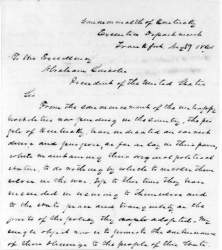 Commonwealth of Kentucky
Executive Department
Frankfort Aug 19 1861
To His Excellency
Abraham Lincoln
President of the United States
Sir
From the commencement of the unhappy
hostilities now pending in this country, the peo-
ple of Kentucky have indicated an earnest
desire and purpose, as far as lay in their power,
while maintaining their original political
status, to do nothing by which to involve them-
selves in the war. Up to this time they have
succeeded in securing to themselves and
to the State, peace and tranquility as the
fruits of the policy they adopted. My
single object now is to promote the continuance
of these blessings to the people of this State